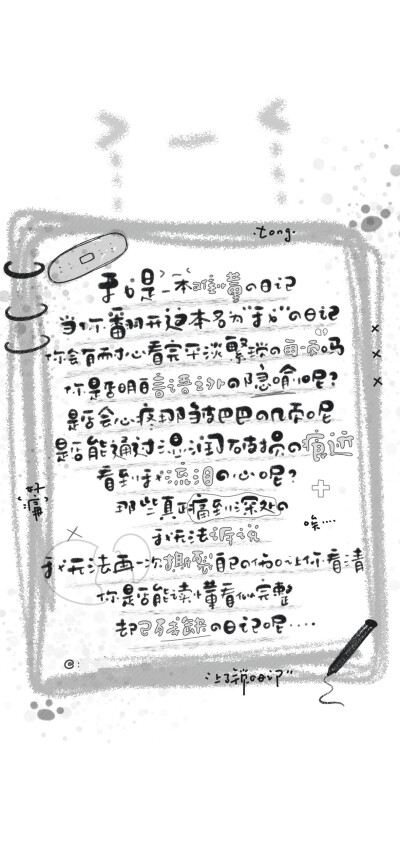 ·tong·
我是一本难懂的日记
当你翻开这本名为"我"的日记
你会有耐心看完平淡繁琐的每一页吗
你是否明白言语之外的隐喻呢?
是否会心疼那皱巴巴的几页呢
是否能通过湿润破损的痕迹
看到我流泪的心呢?
那些真正痛到深处的
我无法诉说
唉····
好痛
我无法再一次撕裂自己的伤口让你看清
你是否能读懂看似完整
却已残缺的日记呢····
©:
"上了锁的日记"